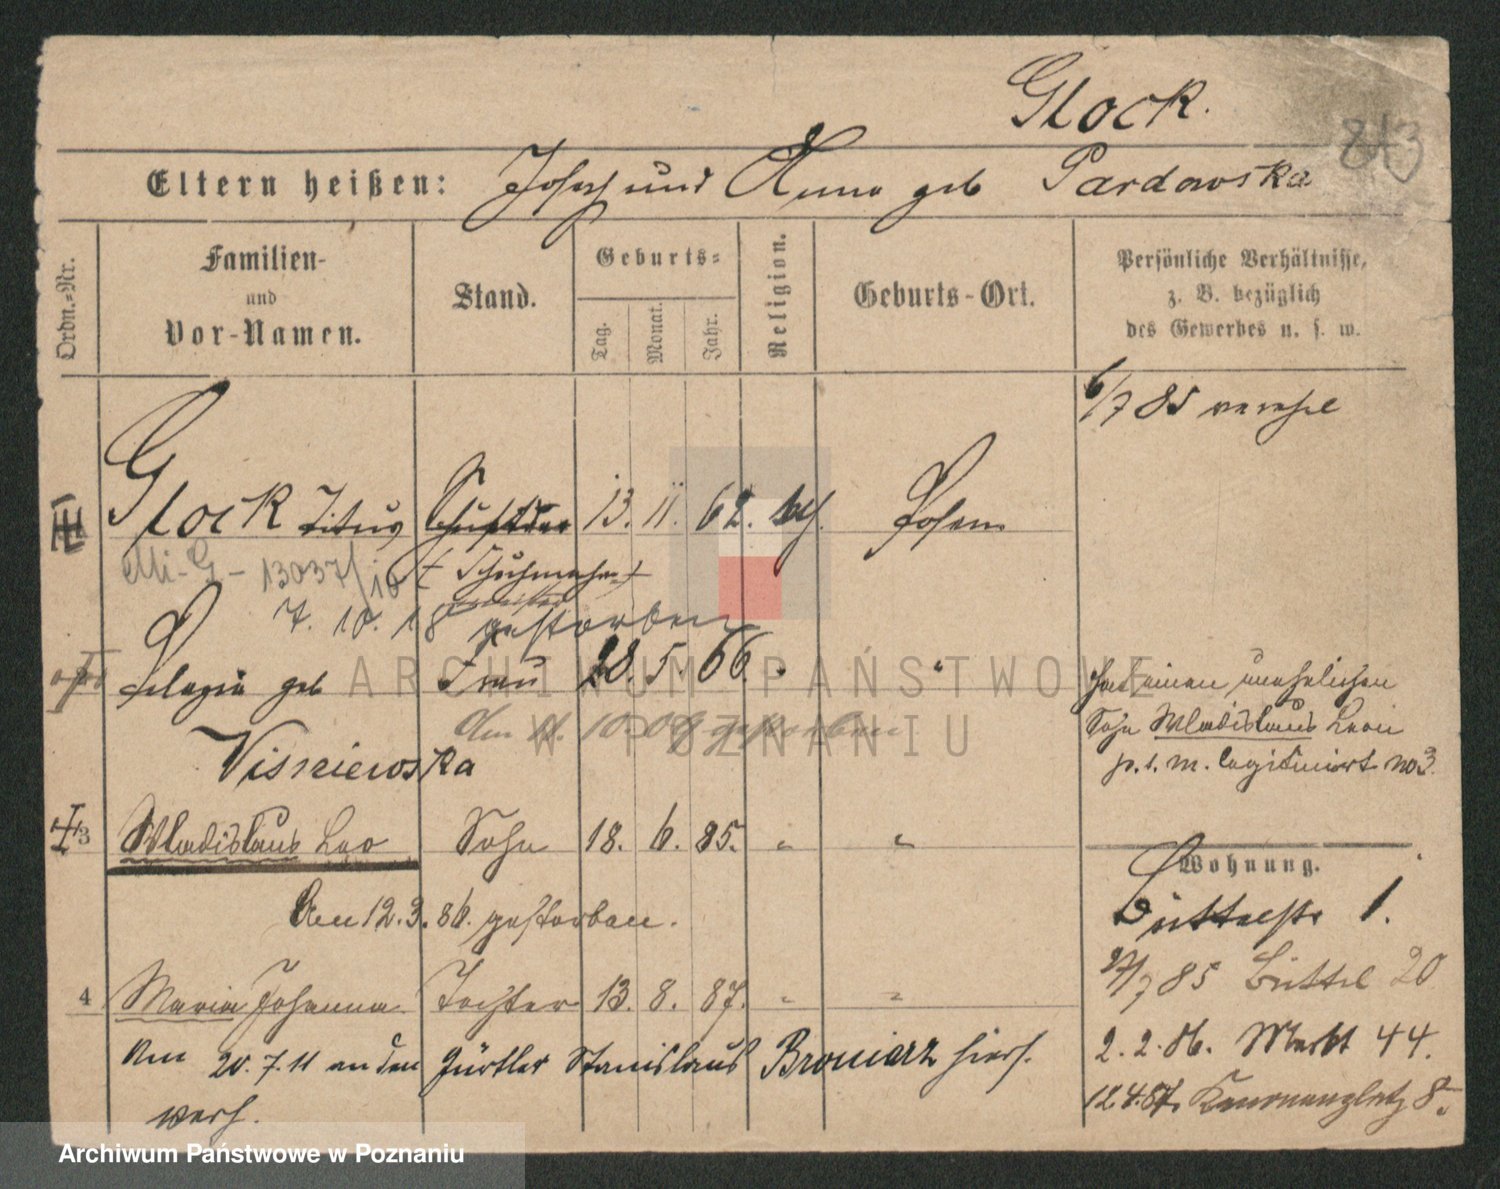 Glock.
813
Eltern heißen: Joseph und Anna geb Pardowska
Ordn.-Nr.
Familien-
und
Vor-Namen.
Stand.
Geburts-
Tag.
Monat.
Jahr.
Religion.
Geburts-Ort.
Persönliche Verhältnisse,
z. B. bezüglich
des Gewerbes u. s. w.
6/7 85 vereh
Glock Titus 13. 11. 62. kath. Posen
Mi-G-13037/10 (Schuhmacher)
7. 10. 18 gestorben
Pelagia geb Frau 28. 5. 66. " "
hat einen unehelichen
den 11. 10. 09 gestorben
Sohn Wladislaus Leon
Visniewska
p. s. m. legitimirt no 3.
3 Wladislaus Leo Sohn 18. 6. 85. " "
Wohnung.
Am 12.3.86. gestorben.
Büttelstr 1.
27/7 85 Büttel 20
4 Maria Johanna Tochter 13. 8. 87. " "
Am 20.7.11 an den Gürtler Stanislaus Broniarz hier
2.2.86. Markt 44.
verh.
12.4.87. Kanonenplatz 8.
ARCHIWUM PAŃSTWOWE
W POZNANIU
Archiwum Państwowe w Poznaniu